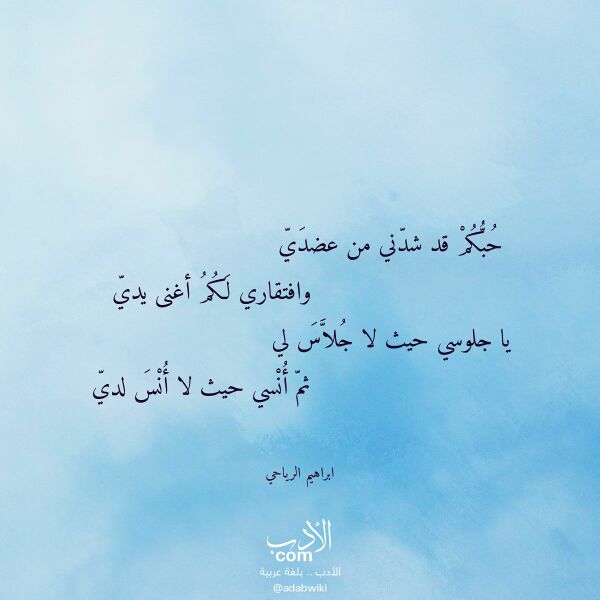 حُبُّكُمْ قد شدّني من عضدَيّ
وافتقاري لَكُمُ أغنى يديّ
يا جلوسي حيث لا جُلاَّسَ لي
ثمّ أُنْسي حيث لا أُنْسَ لديّ
ابراهيم الرياحي
الأدب
com
الأدب .. بلغة عربية
@adabwiki